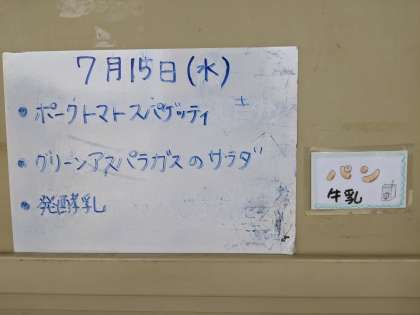 7月15日(水)
・ポークトマトスパゲッティ
・グリーンアスパラガスのサラダ
・発酵乳
パン
牛乳